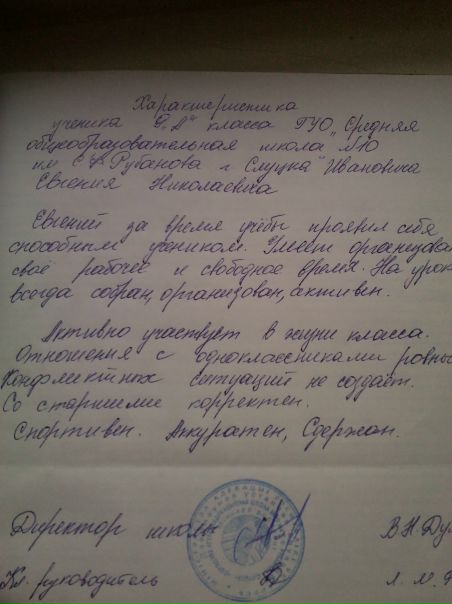 Характеристика
ученика 9 „А" класса ГУО „Средняя
общеобразовательная школа №10
им С.Ф.Рубанова г Слуцка" Ивановича
Евгения Николаевича
Евгений за время учёбы проявил себя
способным учеником. Умеет организов
своё рабочее и свободное время. На урок
всегда собран, организован, активен.
Активно участвует в жизни класса.
Отношения с одноклассниками ровны
Конфликтных ситуаций не создаёт.
Со старшими корректен.
Спортивен. Аккуратен, Сдержан.
Директор школы В Н Ду
Кл. руководитель Л. М.